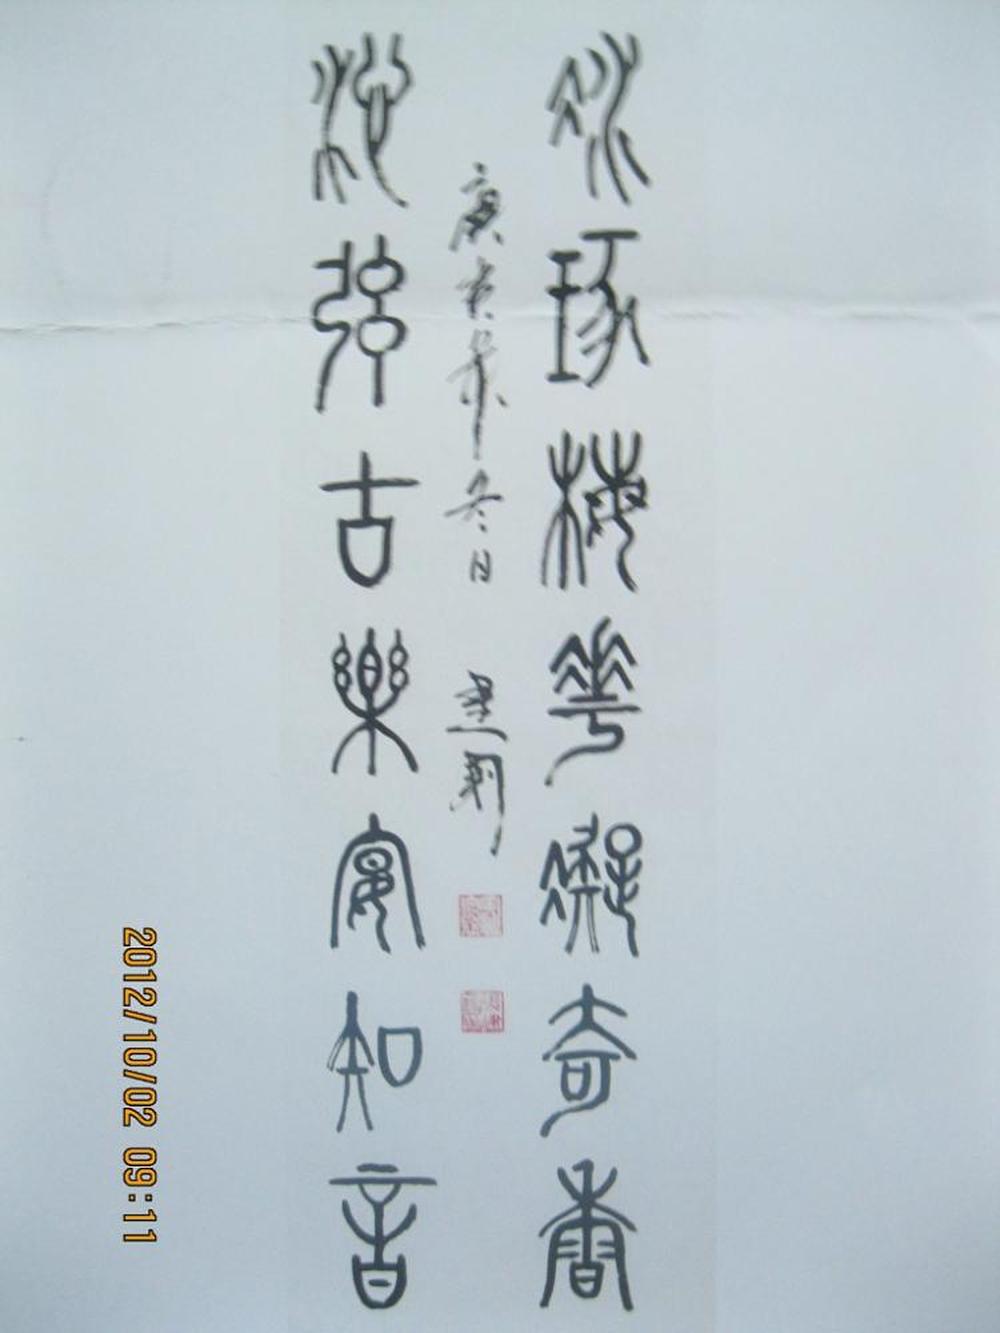 冰琢梅花凝奇香
弦古樂宴知音
庚寅年冬日
2012/10/02 09:11